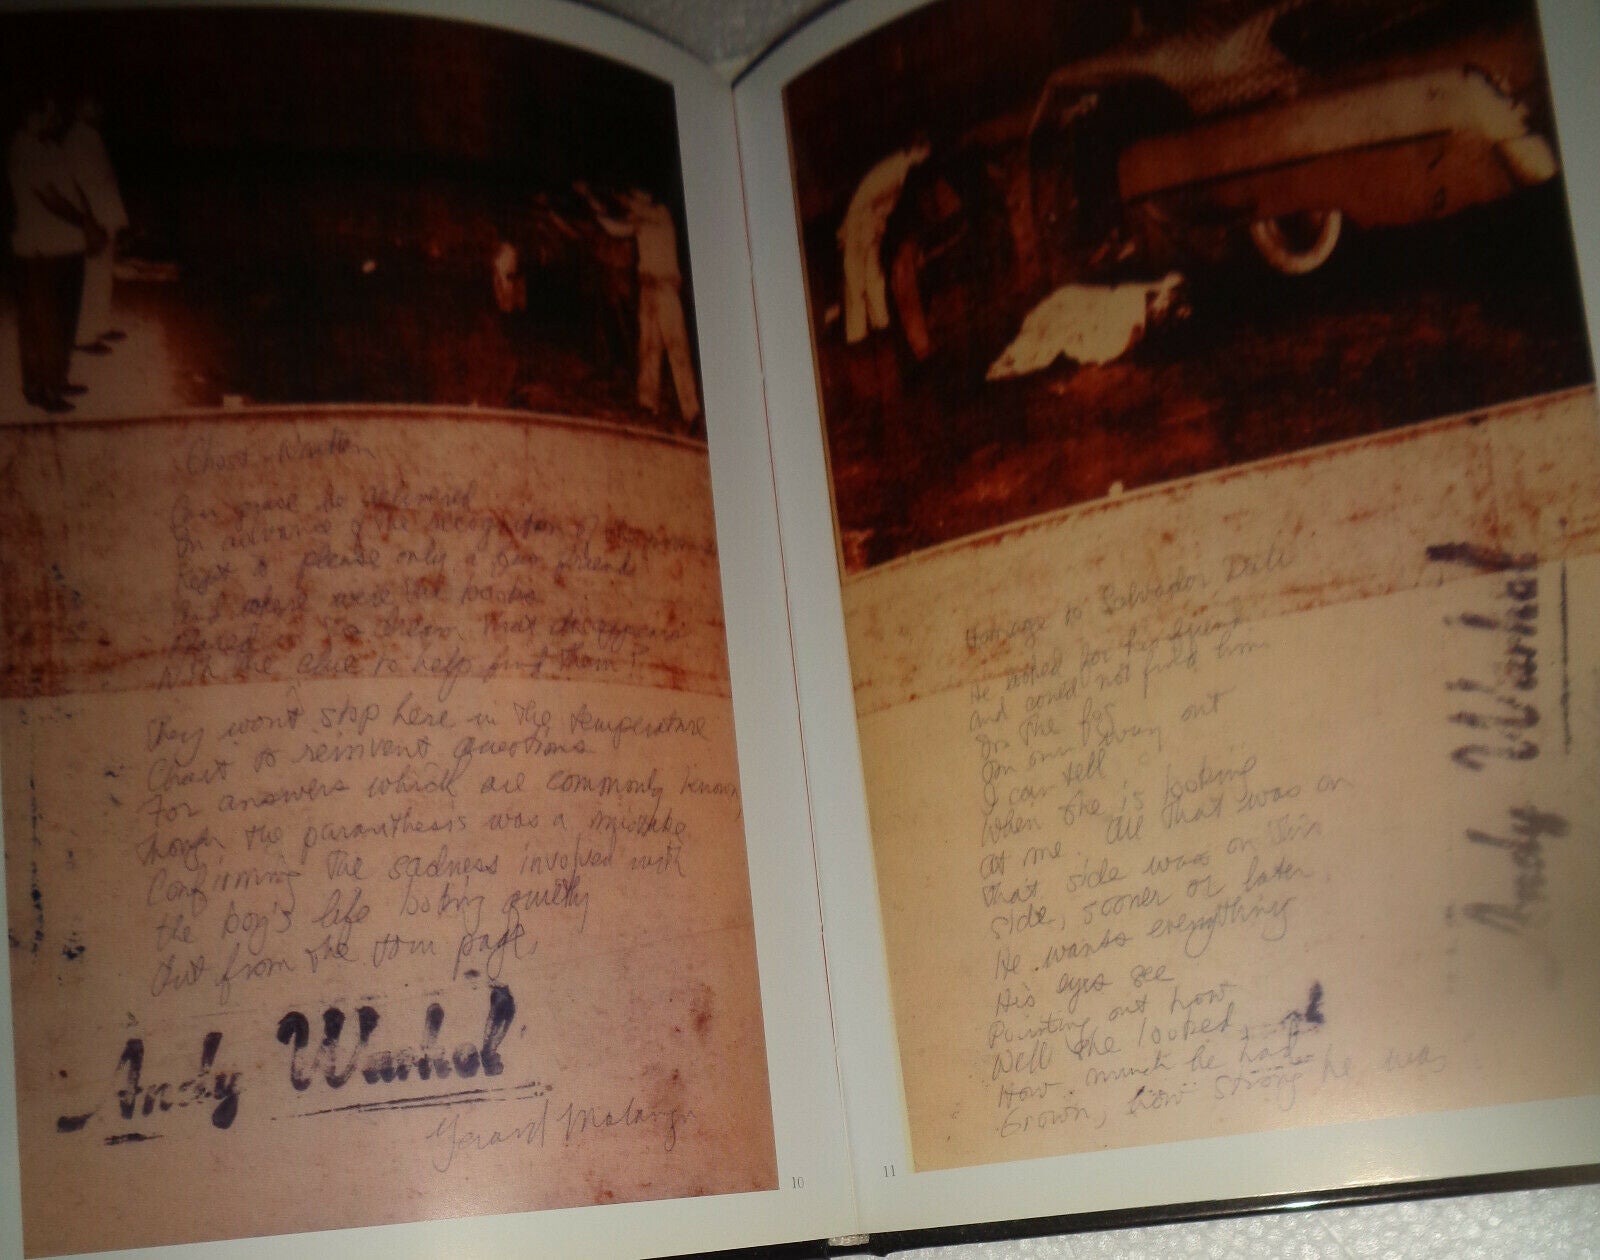 Can grace be delivered
In advance of the recognition of
Kept to please only a few friends
And where were the books
Placed in a dream that disappears
With the clue to help find them?
They won't stop here in the temperature
Chart to reinvent questions
For answers which are commonly known,
Though the paranthesis was a mistake
Confirming the sadness involved with
the boy's life looking quietly
Out from the torn page,
Andy Warhol
Gerard Malanga
10
Homage to Salvador Dali
He looked for his friend
and could not find him
In the fog
On our way out
I can tell
When she is looking
at me. All that was on
that side was on this
side, sooner or later
He wants everything
His eyes see
Pointing out how
Well she looked,
How much he had
Grown, how strong he was
Andy Warhol
11